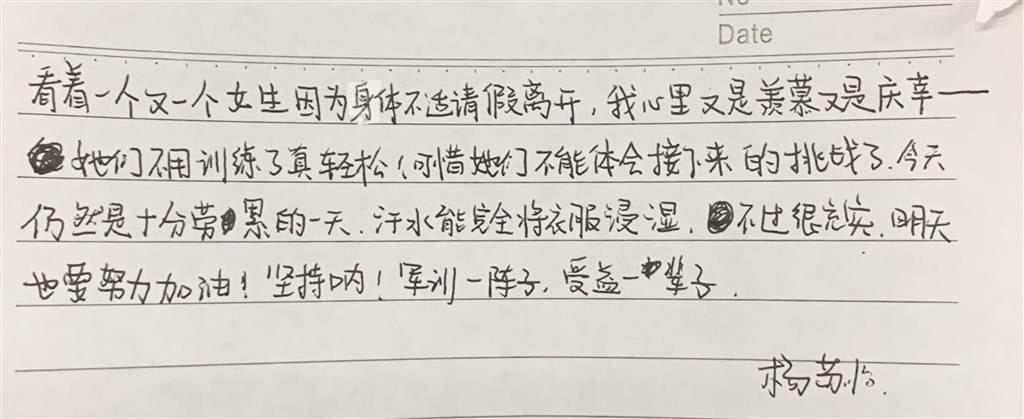 Date
看着一个又一个女生因为身体不适请假离开，我心里又是羡慕又是庆幸——
她们不用训练了真轻松！可惜她们不能体会接下来的挑战了.今天
仍然是十分劳累的一天.汗水能完全将衣服浸湿.不过很充实.明天
也要努力加油！坚持呐！军训一阵子.受益一辈子.
杨苏怡.